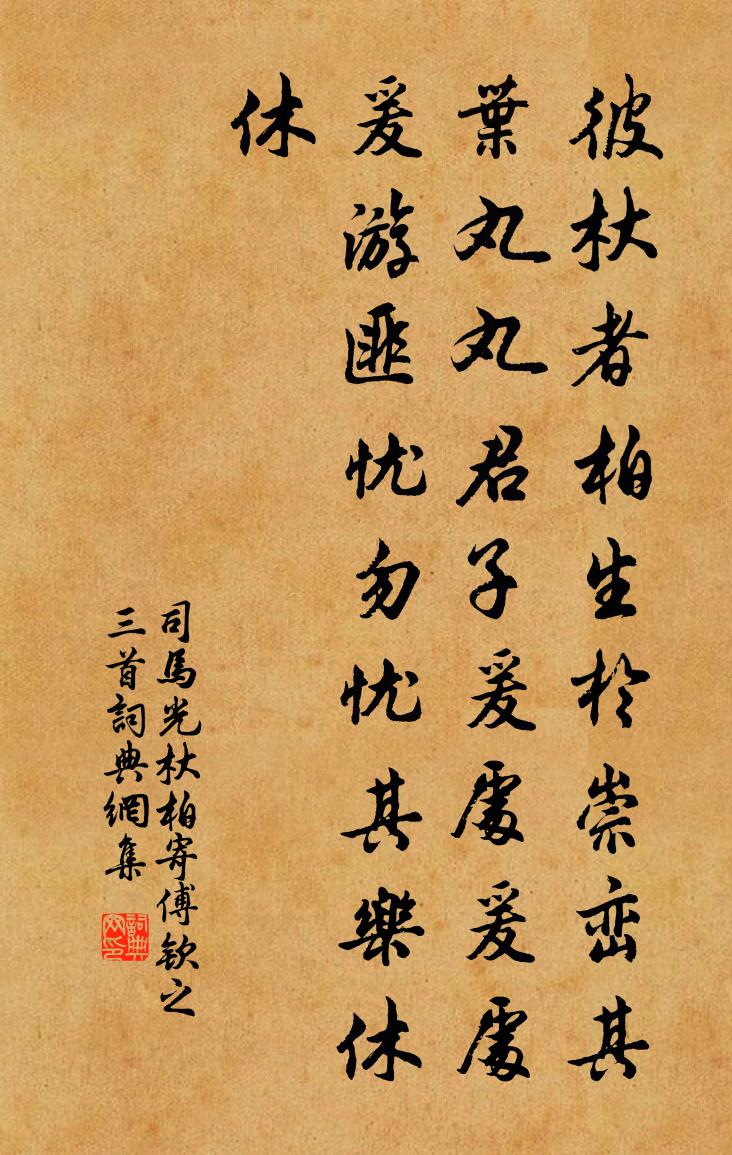 彼杕者柏生於崇峦其
葉丸丸君子爰處爰處
爰游匪忧勿忧其樂休
休
司馬光杕柏寄傅欽之
三首詞典網集
詞典网印